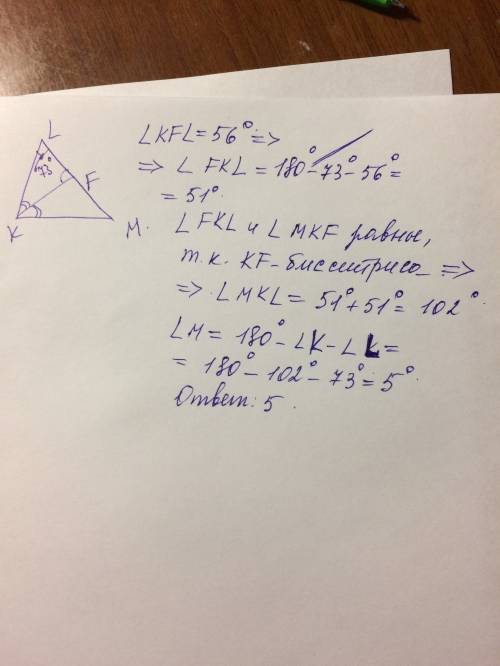 L
73°
F
K
M.
∠KFL = 56° =>
=> ∠ FKL = 180° - 73° - 56° =
= 51°.
∠ FKL и ∠ MKF равны,
т.к. KF - биссектриса =>
=> ∠ MKL = 51° + 51° = 102°
∠M = 180° - ∠K - ∠ L =
= 180° - 102° - 73° = 5°
Ответ: 5.